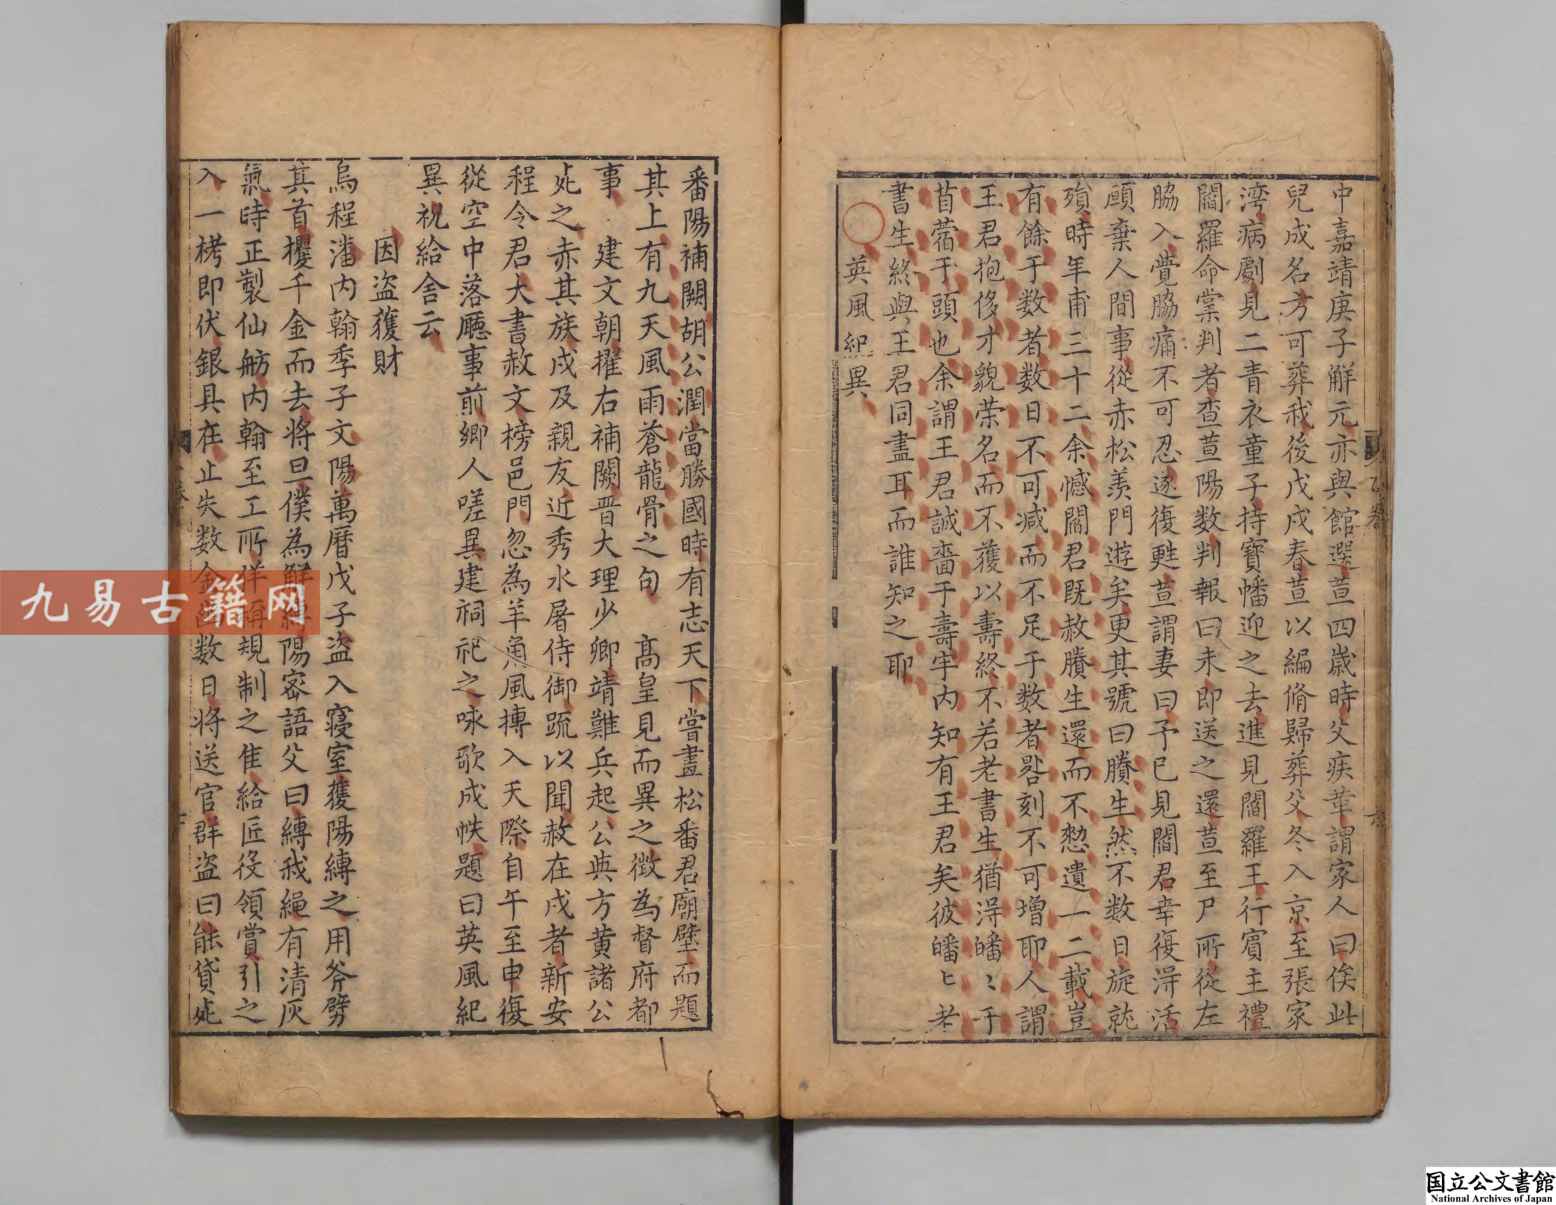 中嘉靖庚子解元亦與館選荁四歲時父疾革謂家人曰俟此
兒成名方可葬我後戊戌春荁以編脩歸葬父冬入京至張家
湾病劇見二青衣童子持寶幡迎之去進見閻羅王行賓主禮
閻羅命棠判者查荁陽数判報曰未即送之還荁至尸所從左
脇入覺脇痛不可忍逐復甦荁謂妻曰予已見閻君幸復淂活
願棄人間事從赤松羨門遊矣更其號曰賸生然不数日旋就
殞時年甫三十二余憾閻君既赦賸生還而不憗遺一二載豈
有餘于数者数日不可减而不足于数者晷刻不可增耶人謂
王君抱侈才貌荣名而不獲以壽終不若老書生猶淂皤〻于
苜蓿于頭也余謂王君誠嗇于壽宇内知有王君矣彼皤〻老
書生終與王君同盡耳而誰知之耶
英風紀異
番陽補闕胡公潤當勝國時有志天下嘗畫松番君廟壁而題
其上有九天風雨蒼龍骨之句 高皇見而異之徴為督府都
事 建文朝擢右補闕晋大理少卿靖難兵起公與方黄諸公
死之赤其族戍及親友近秀水屠侍御疏以聞赦在戍者新安
程令君大書赦文榜邑門忽為羊角風摶入天際自午至申復
從空中落廳事前鄉人嗟異建祠祀之咏歌成帙題曰英風紀
異祝給舎云
因盗獲財
烏程潘内翰季子文陽萬曆戊子盗入寝室獲陽縛之用斧劈
其首攫千金而去将旦僕為解縛陽密語父曰縛我繩有清灰
氣時正製仙舫内翰至工所佯稱規制之佳給匠役領賞引之
入一栲即伏銀具在止失数金 数日将送官群盗曰能貸死
九易古籍网
国立公文書館
National Archives of Japan